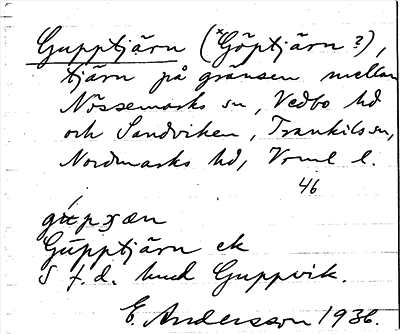 Gupptjärn (*Göptjärn?),
tjärn på gränsen mellan
Nössemarks sn, Vedbo hd
och Sandviken, Trankils sn,
Nordmarks hd, Vrml l.
46
Gupptjärn ek
S f.d. Guppvik.
E. Andersson 1936.